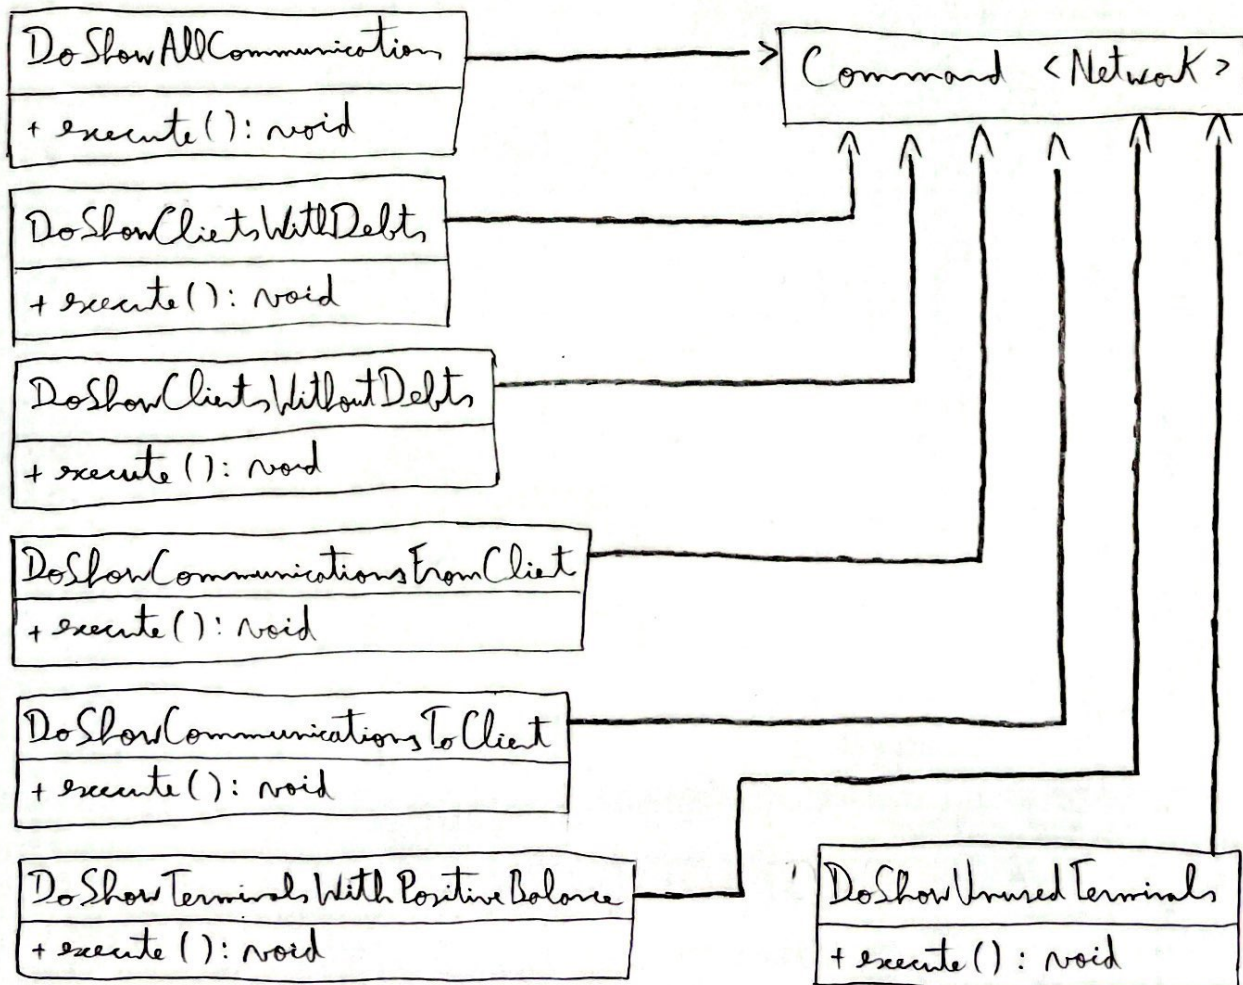 DoShowAllCommunications
+ execute(): void
Command <Network>
DoShowClientsWithDebts
+ execute(): void
DoShowClientsWithoutDebts
+ execute(): void
DoShowCommunicationsFromClient
+ execute(): void
DoShowCommunicationsToClient
+ execute(): void
DoShowTerminalsWithPositiveBalance
+ execute(): void
DoShowUnusedTerminals
+ execute(): void